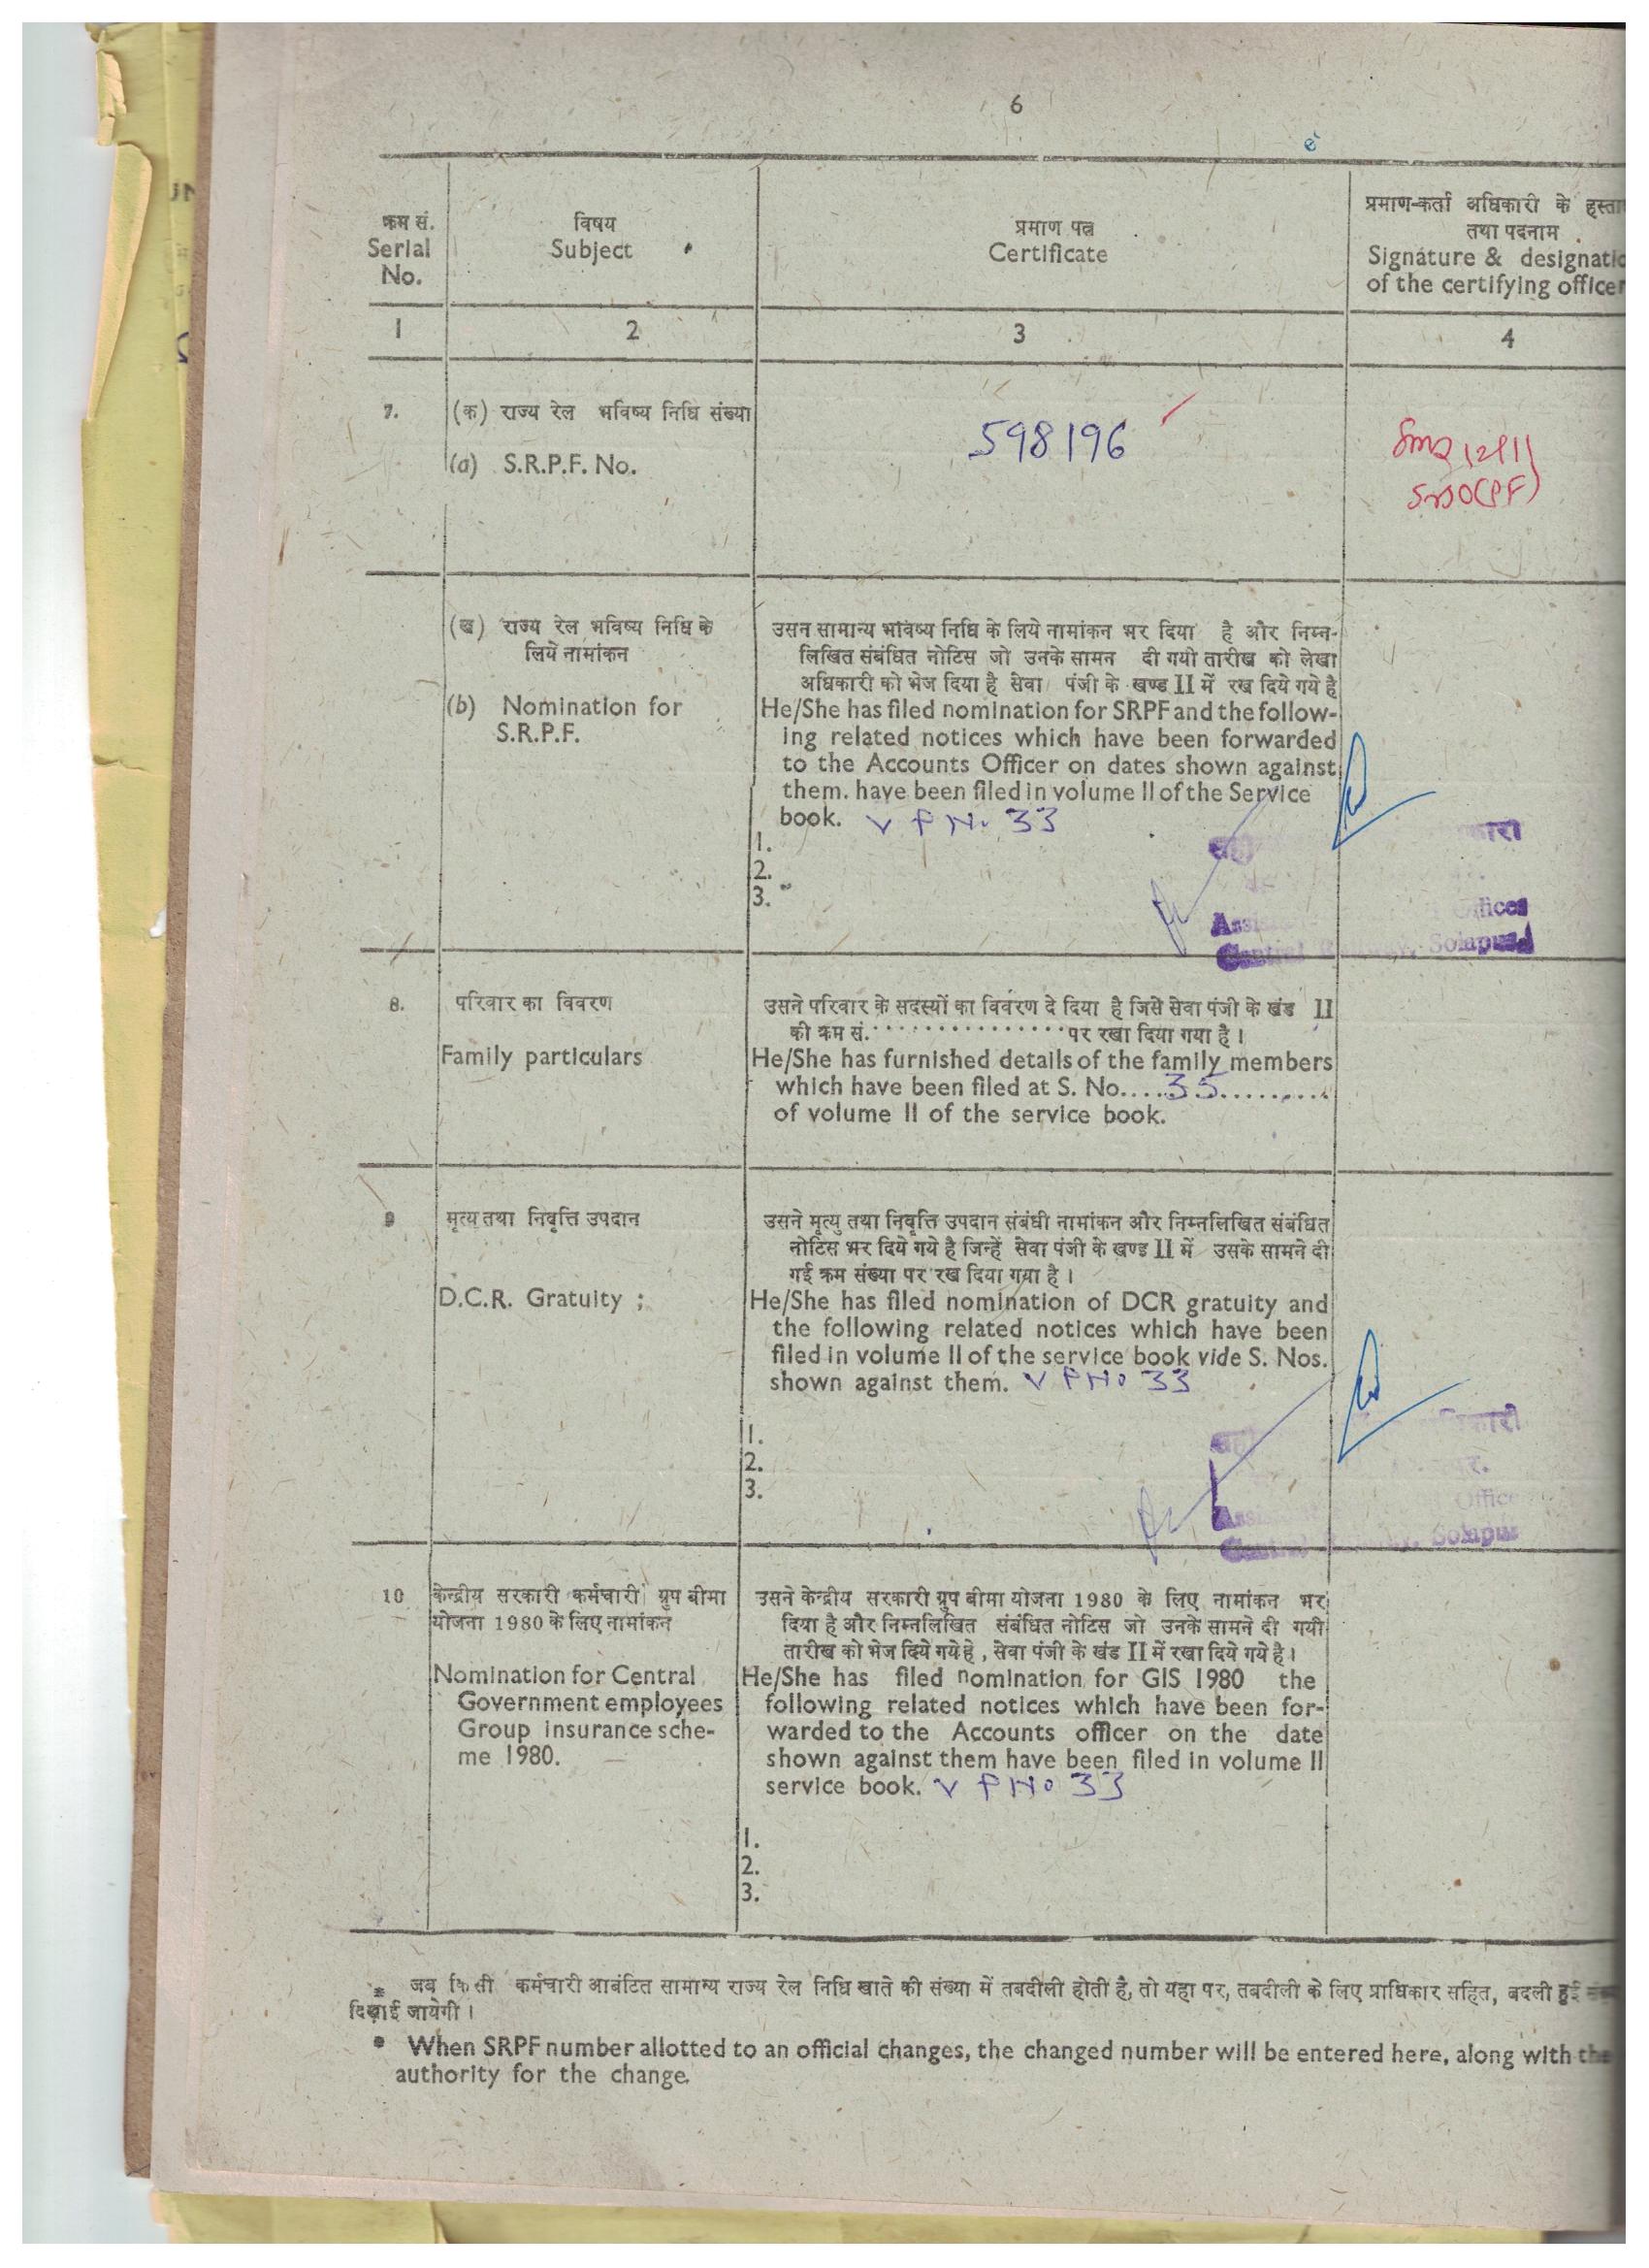 6
क्रम सं.
Serial
No.
विषय
Subject
प्रमाण पत्र
Certificate
प्रमाण-कर्ता अधिकारी के
तथा पदनाम
Signature & designatio
of the certifying officer
1 2 3 4
7. (क) राज्य रेल भविष्य निधि संख्या
(a) S.R.P.F. No.
598196
(ख) राज्य रेल भविष्य निधि के
लिये नामांकन
(b) Nomination for
S.R.P.F.
उसन सामान्य भविष्य निधि के लिये नामांकन भर दिया है और निम्न-
लिखित संबंधित नोटिस जो उनके सामन दी गयी तारीख को लेखा
अधिकारी को भेज दिया है सेवा पंजी के खण्ड II में रख दिये गये है
He/She has filed nomination for SRPF and the follow-
ing related notices which have been forwarded
to the Accounts Officer on dates shown against
them. have been filed in volume II of the Service
book. V P No. 33
1.
2.
3.
Central Solapur
8. परिवार का विवरण
Family particulars
उसने परिवार के सदस्यों का विवरण दे दिया है जिसे सेवा पंजी के खंड II
की क्रम सं. ................ पर रखा दिया गया है ।
He/She has furnished details of the family members
which have been filed at S. No....35.........
of volume II of the service book.
9 मृत्यु तथा निवृत्ति उपदान
D.C.R. Gratuity ;
उसने मृत्यु तथा निवृत्ति उपदान संबंधी नामांकन और निम्नलिखित संबंधित
नोटिस भर दिये गये है जिन्हें सेवा पंजी के खण्ड II में उसके सामने दी
गई क्रम संख्या पर रख दिया गया है ।
He/She has filed nomination of DCR gratuity and
the following related notices which have been
filed in volume II of the service book vide S. Nos.
shown against them. V P No 33
1.
2.
3.
Central Solapur
10 केन्द्रीय सरकारी कर्मचारी ग्रुप बीमा
योजना 1980 के लिए नामांकन
Nomination for Central
Government employees
Group insurance sche-
me 1980.
उसने केन्द्रीय सरकारी ग्रुप बीमा योजना 1980 के लिए नामांकन भर
दिया है और निम्नलिखित संबंधित नोटिस जो उनके सामने दी गयी
तारीख को भेज दिये गये हे, सेवा पंजी के खंड II में रखा दिये गये है ।
He/She has filed nomination for GIS 1980 the
following related notices which have been for-
warded to the Accounts officer on the date
shown against them have been filed in volume II
service book. V P No 33
1.
2.
3.
* जब किसी कर्मचारी आबंटित सामान्य राज्य रेल निधि खाते की संख्या में तबदीली होती है, तो यहा पर, तबदीली के लिए प्राधिकार सहित, बदली हुई
दिखाई जायेगी ।
• When SRPF number allotted to an official changes, the changed number will be entered here, along with the
authority for the change.